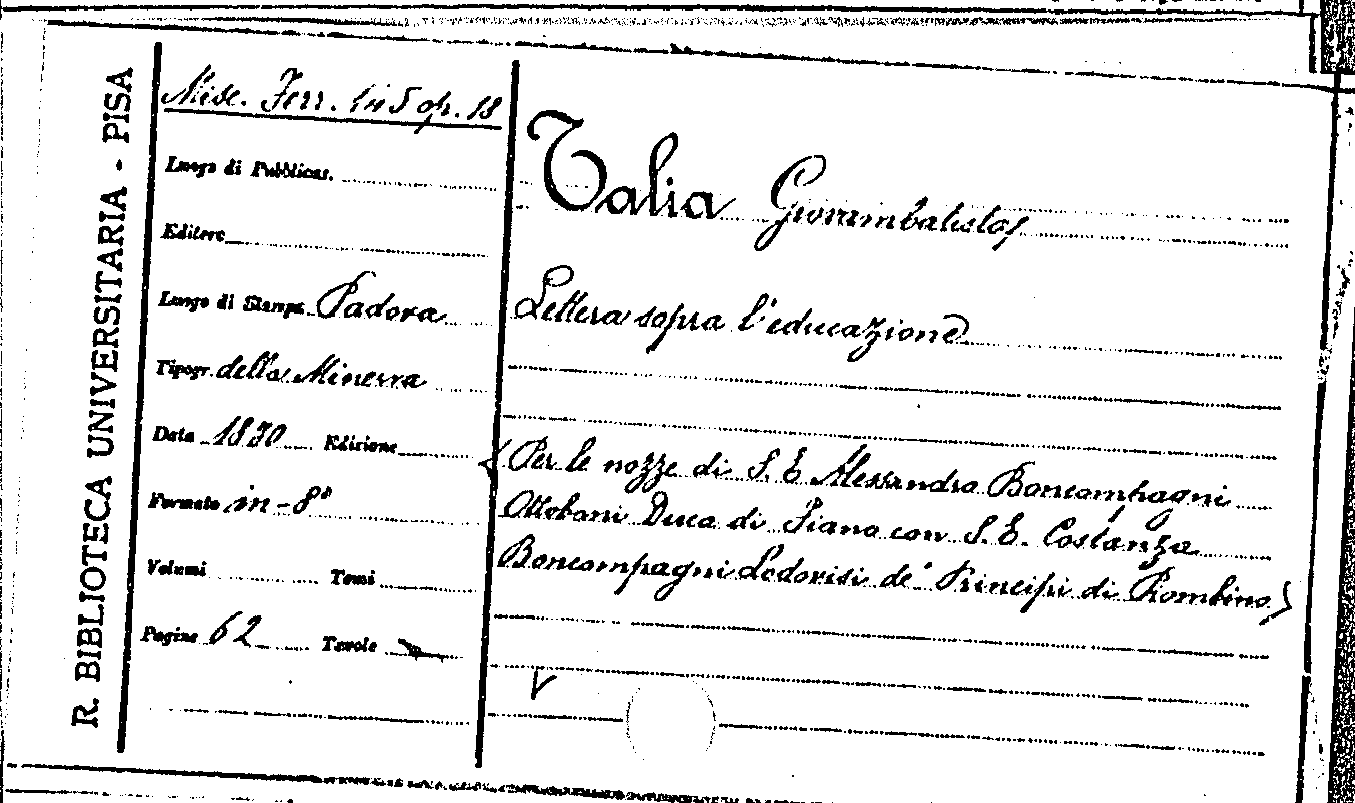 R. BIBLIOTECA UNIVERSITARIA - PISA
Misc. Ferr. 145 op. 18
Luogo di Pubblicaz.
Editore
Luogo di Stampa Padova
Tipogr. della Minerva
Data 1830 Edizione
Formato in-8°
Volumi Tomi
Pagine 62 Tavole
Talia Giovambatista
Lettera sopra l'educazione
(Per le nozze di S. E Alessandro Boncompagni
Ottoboni Duca di Fiano con S. E. Costanza
Boncompagni Lodovisi de' Principi di Piombino)